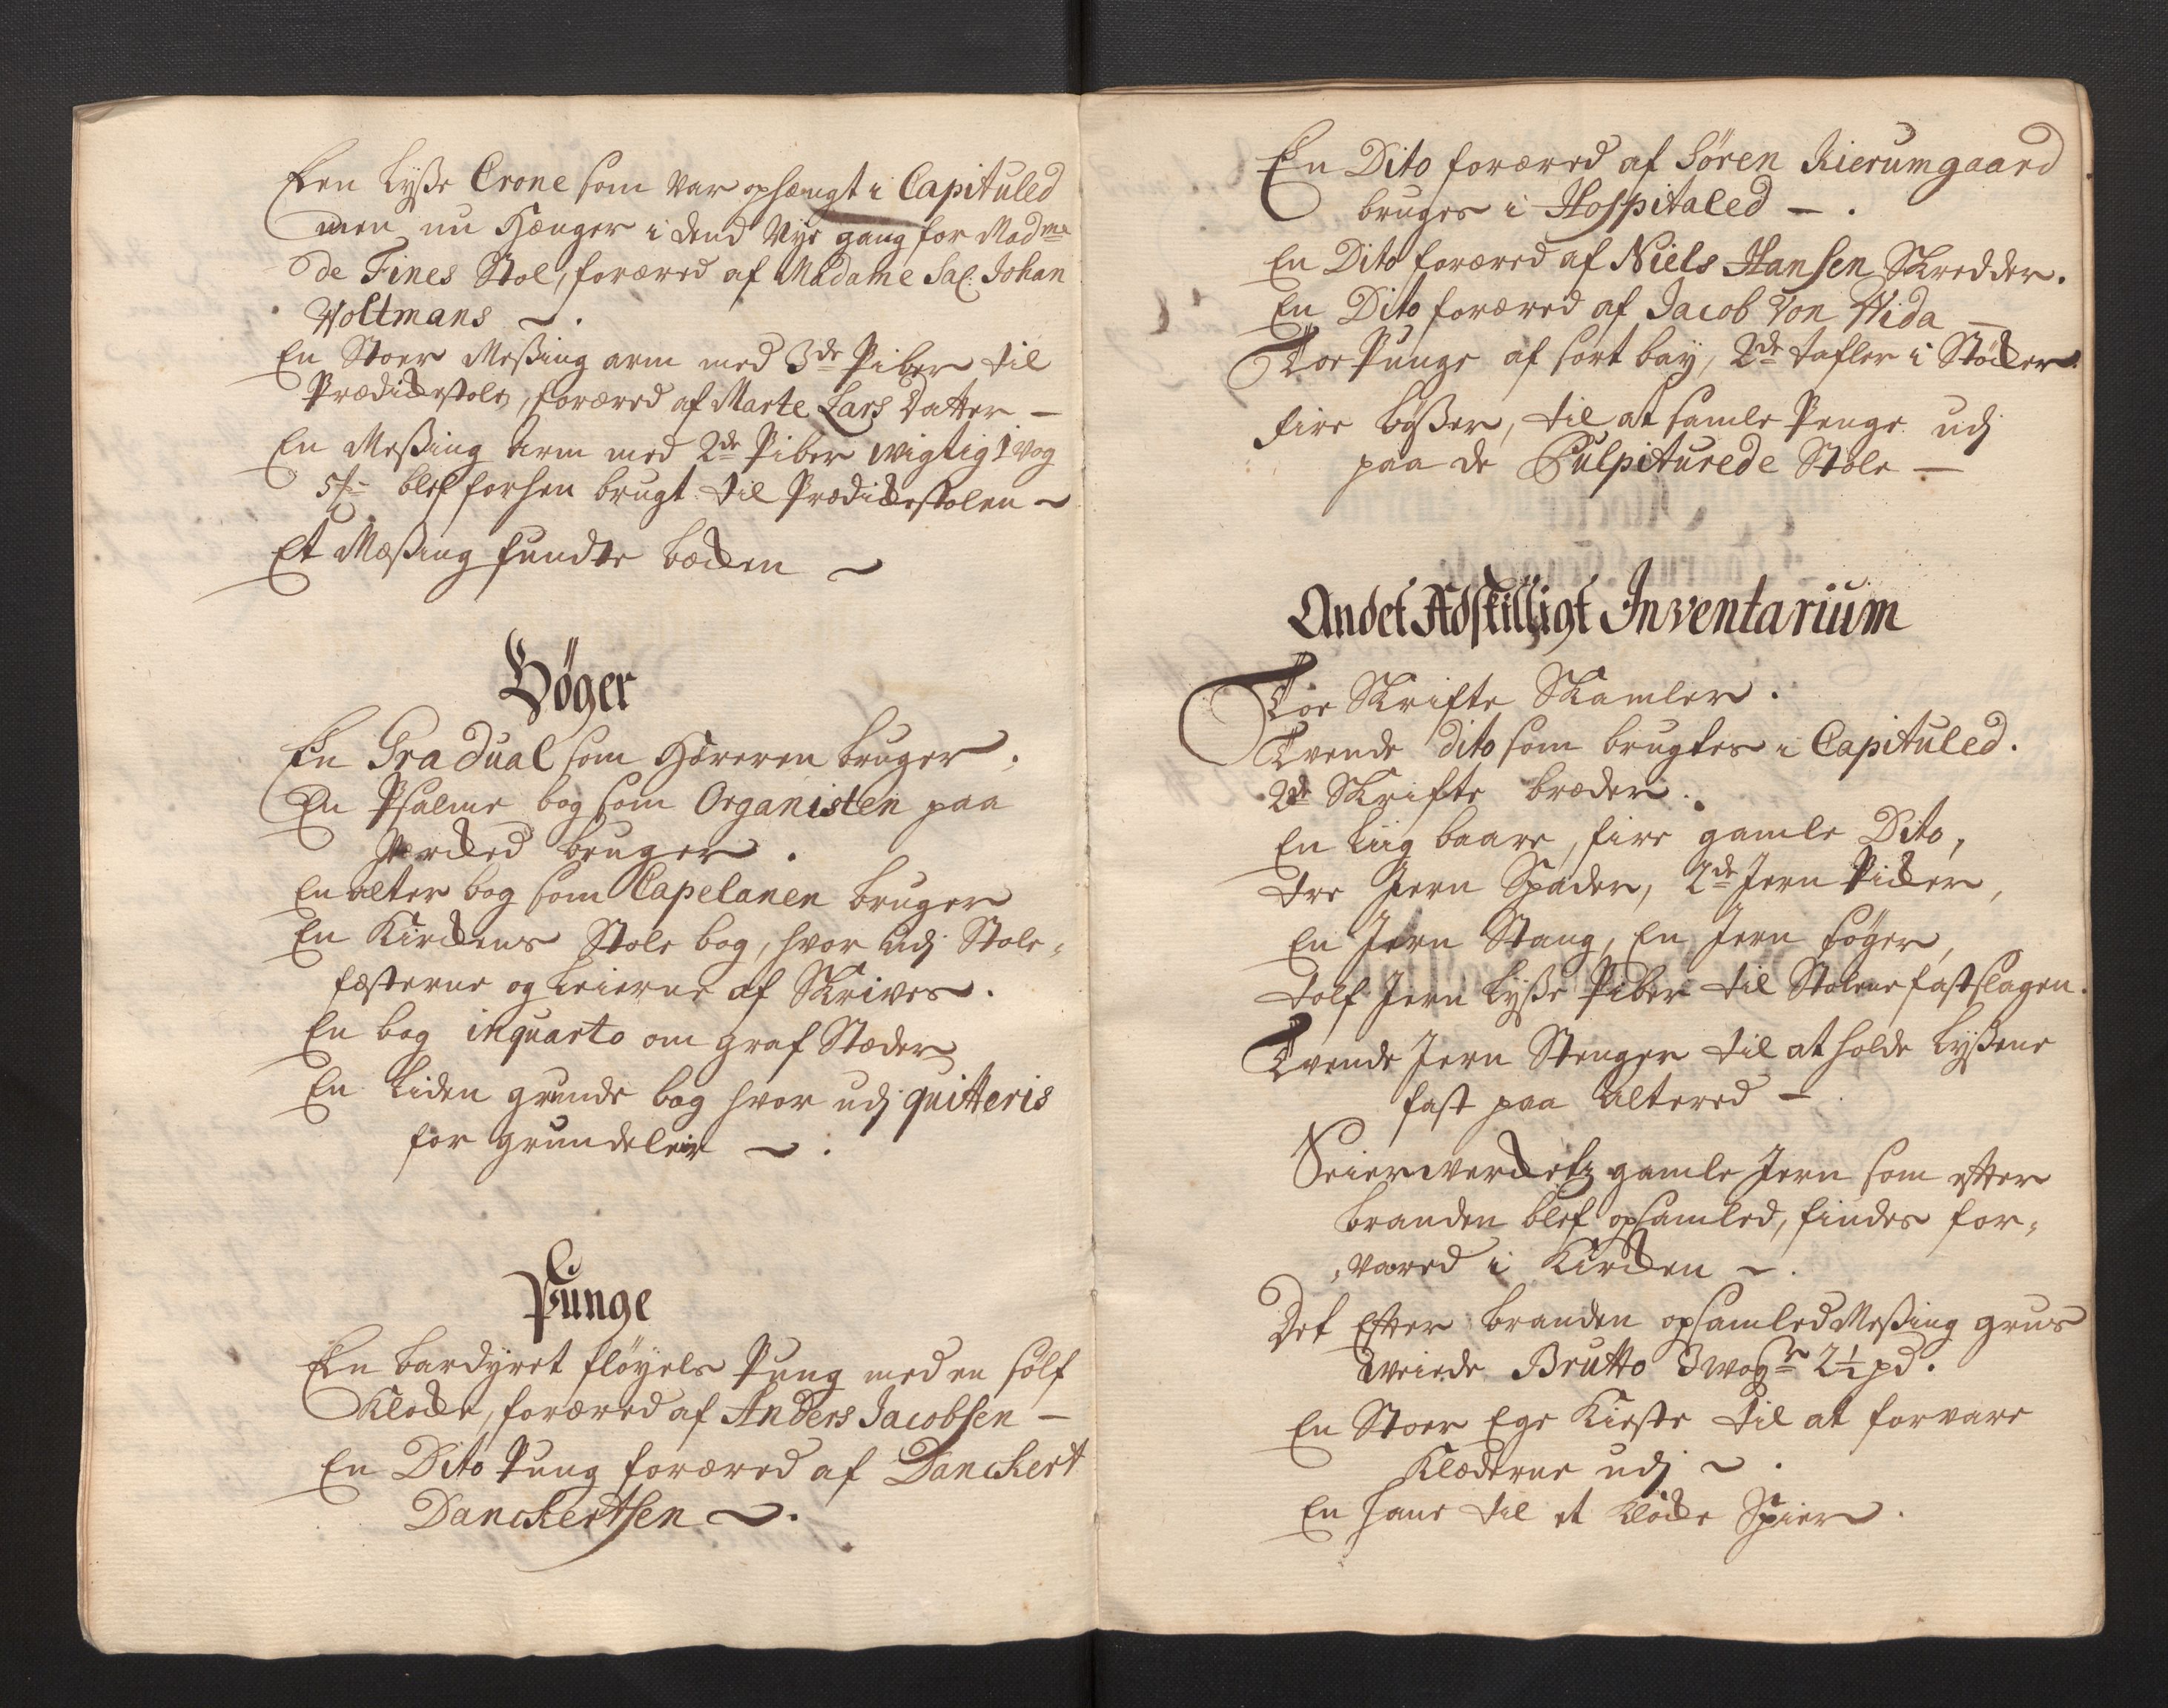 Een Lyße Crone som var ophængt i Capituled
men nu Hænger i dend Nye gang for Madme
de Fines Stol, foræred af Madame Sal: Johan
Woltmans ~.
En Stoer Meßing arm med 3de Piber til
Prædickestole, foræred af Marte Lars Datter —
En Meßing Arm med 2de Piber wigtig 1 wog
blef forhen brugt til Prædickestolen ~
Et Meßing fundte becken ~
Bøger
En Gradual som Høreren bruger.
En Psalme bog som Organisten paa
Værcked bruger.
En alter bog som Capelanen bruger
En Kirckens Stole bog, hvor udj Stole-
fæsterne og Leierne af Skrives.
En bog inquarto om graf Stæder
En liden grunde bog hvor udj quitteris
for grundeleie ~.
Punge
Een bardyret fløyels Pung med en sølf
Klocke, foræred af Anders Jacobsen —
En Dito Pung foræred af Danckert
Danckertsen ~.
En Dito foræred af Søren Kierumgaard
bruges i Hospitaled —.
En Dito foræred af Niels Hansen Skredder.
En Dito foræred af Jacob Von Wida —
Toe Punge af sort bay, 2de tafler i Støcker
Fire bøßer, til at samle Penge udj
paa de Pulpiturede Stole —
Andet Adskilligt Inventarium
Toe Skrifte Skamler.
Tvende dito som brugtes i Capituled.
2de Skrifte bræder.
En Liig baare, fire gamle Dito,
tre Jern Spader, 2de Jern Picker,
En Jern Stang, En Jern
tolf Jern Lyße Piber til Stolene fastslagen.
Tvende Jern Stenger til at holde Lyßene
fast paa Altered —
Seierverckets gamle Jern som efter
branden blef opsamled, findes for-
-vared i Kircken ~.
Det Efter branden opsamled Meßing grus
weiede Brutto 3 woger 2½ pd.
En Stoer Ege Kiste til at forvare
Klæderne udj ~.
En hane til et Klocke Spier.